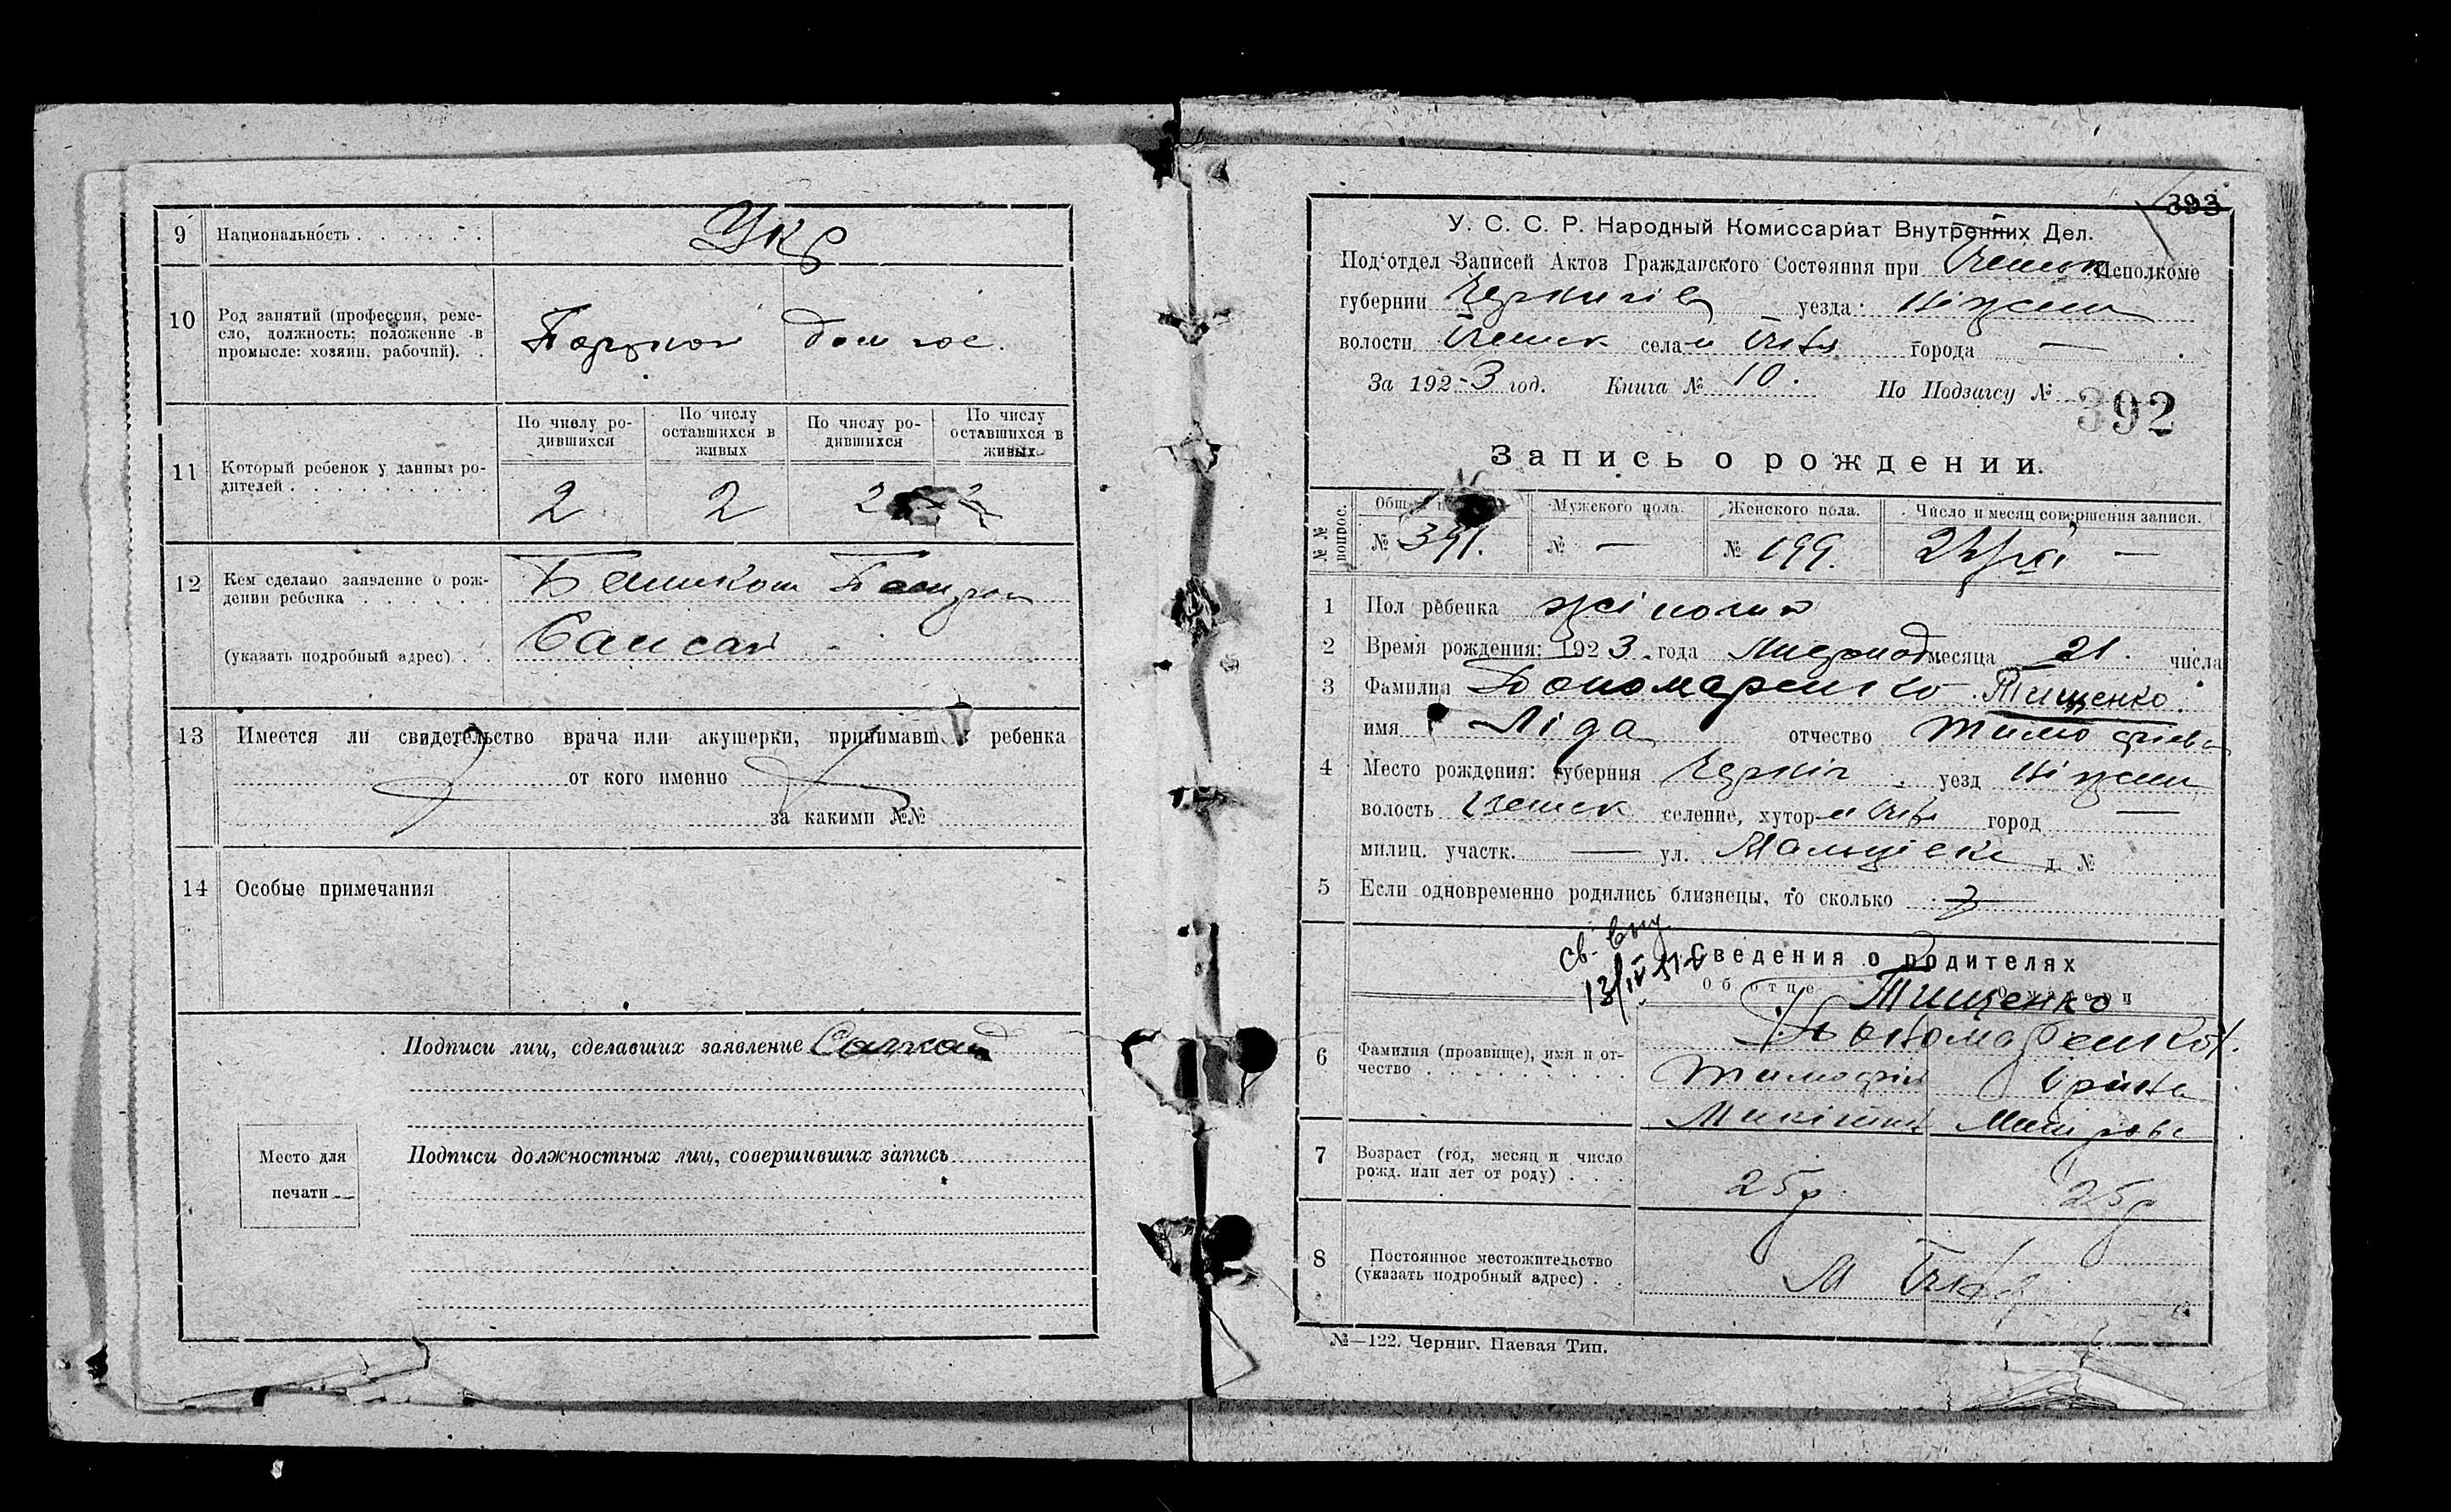 9 Национальность . . . . . . . Укр
10 Род занятий (профессия, реме-
сло, должность; положение в
промысле: хозяин, рабочий). .
дом гос.
По числу ро-
дившихся
По числу
оставшихся в
живых
По числу ро-
дившихся
По числу
оставшихся в
живых
11 Который ребенок у данных ро-
дителей . . . . . . . . . .
2 2 2
12 Кем сделано заявление о рож-
дении ребенка . . . . . .
(указать подробный адрес) . .
13 Имеется ли свидетельство врача или акушерки, принимавш ребенка
от кого именно
за какими №№
14 Особые примечания
Подписи лиц, сделавших заявление
Место для
печати
Подписи должностных лиц, совершивших запись
393
У. С. С. Р. Народный Комиссариат Внутренних Дел.
Под'отдел Записей Актов Гражданского Состояния при Исполкоме
губернии Чернигів уезда Ніжин
волости Ичнянск села м Ичня города —
За 192-3 год. Книга № 10. По Подзагсу № 392
Запись о рождении.
№№ вопрос.
Общ
Мужского пола.
Женского пола.
Число и месяц совершения записи.
№ 391. № — № 199.
1 Пол ребенка жіноча
2 Время рождения: 1923 года месяца 21. числа
3 Фамилия Пономаренко Тищенко.
имя Ліда отчество Тимофіева
4 Место рождения: губерния Черніг уезд Ніжин
волость селение, хутор м Ичня город —
милиц. участк. — ул. д. №
5 Если одновременно родились близнецы, то сколько
св. выд.
13/IV 51 г
Сведения о родителях
Об отце О матери
Тищенко
6 Фамилия (прозвище), имя и от-
чество . . . . . . . . . .
Пономаренко
Тимофій Оріна
7 Возраст (год, месяц и число
рожд. или лет от роду) . . .
25 р 25 р
8 Постоянное местожительство
(указать подробный адрес) . .
М Ичня
№—122. Черниг. Паевая Тип.